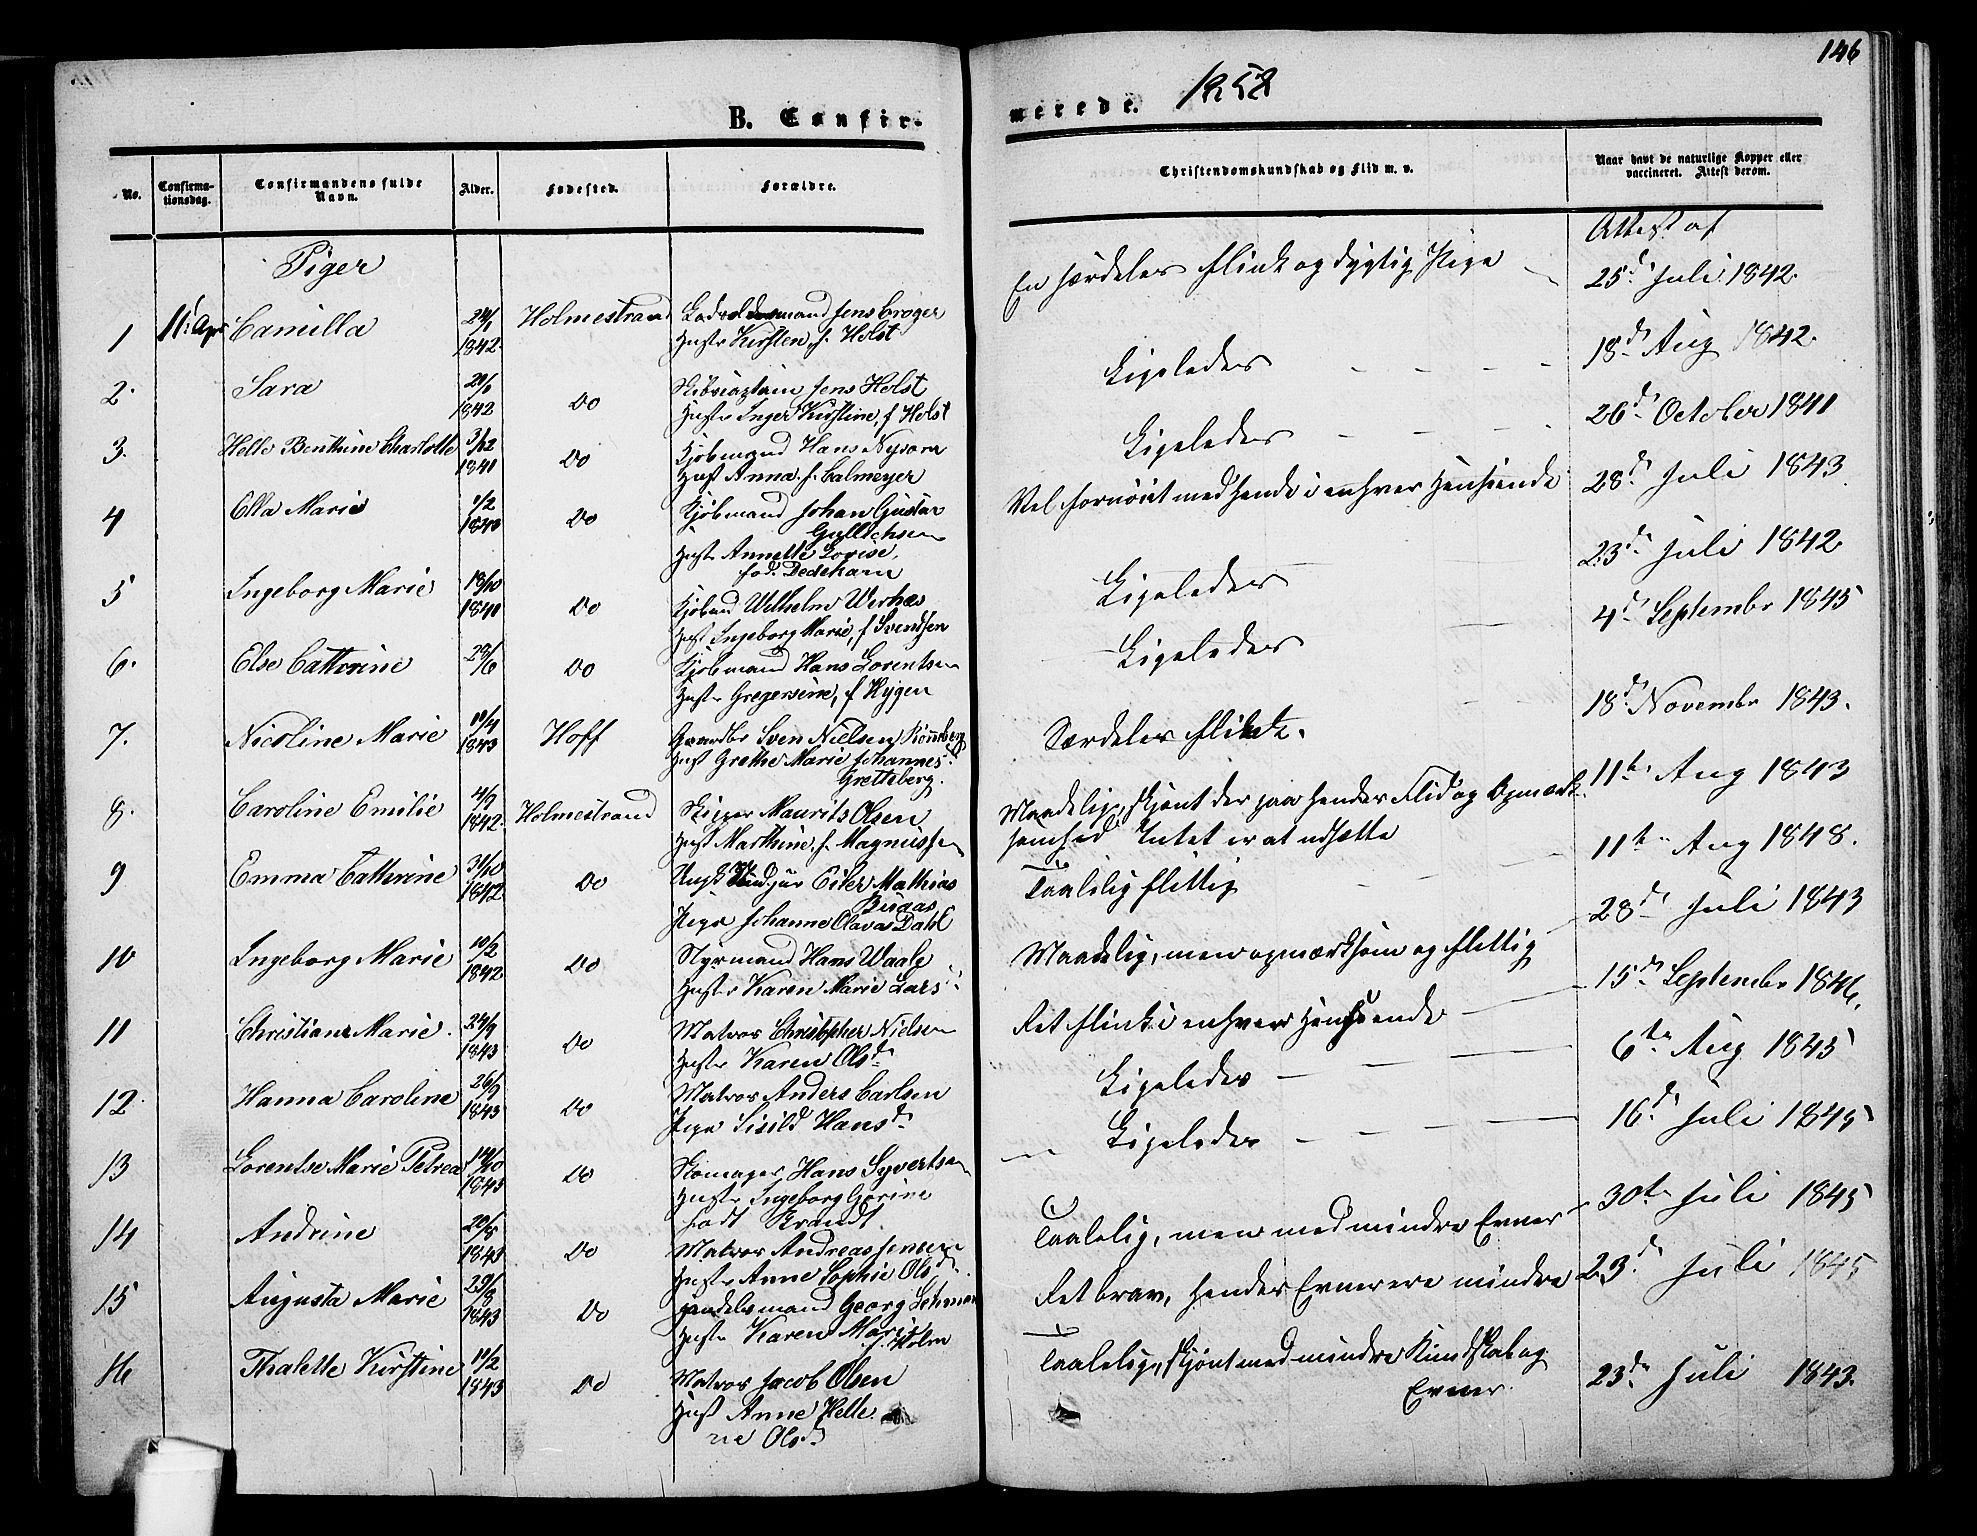 146
B. Confir-
merede. 1858
No.
Confirma-
tionsdag.
Confirmandens fulde
Navn.
Alder.
Fødested.
Forældre.
Christendomskundskab og Flid m. v.
Naar havt de naturlige Kopper eller
vaccineret. Attest derom.
Piger
Attest af
1 11' Apr Camilla 24/1 1842 Holmestrand
mand Jens Crøger
Hustr Kirsten f. Holst
En særdeles flink og dygtig Pige
25d Juli 1842.
2. Sara 20/1 1842 Do
Skibscaptain Jens Holst
Hustr Inger Kirstine, f Holst
Ligeledes
18d Aug 1842.
3. Helle Benthine Charlotte 3/12 1841 Do
Kjøbmand Hans
Hust Anna f. Calmeyer
Ligeledes
26d October 1841
4 Ella Marie 1/2 1840 Do
Kjøbmand Johan Gustav
Gullichsen
Hustr Annette Lovise,
fød. Dedekam
Vel fornøiet med hende i enhver Henseende
28d Juli 1843
5 Ingeborg Marie 18/10 1841 Do
Wilhelm
Hust Ingeborg Marie, f Svendsen
Ligeledes
23d Juli 1842
6. Else Cathrine 29/6 Do
Kjøbmand Hans Lorentsen
Hustr Gregersine, f Hygen
Ligeledes
4d Septembr 1845
7. Nicoline Marie 10/4 1843 Hoff
Gaardbr Sven Nielsen Rønneberg
Hust Grethe Marie Johannes
Gretteberg.
Særdeles flink.
18d Novembr 1843.
8. Caroline Emilie 4/9 1842 Holmestrand
Skipper Maurits Olsen
Hust Marthine, f. Magnussen
Maadelig, skjønt der paa hendes Flid og Opmærk-
somhed Intet er at udsætte
11te Aug 1843
9 Emma Cathrine 31/10 1842 Do
Ungk Eiler Mathias
Pige Johanne Olava Dahl
Taalelig flittig
11te Aug 1848.
10 Ingeborg Marie 10/2 1842 Do
Styrmand Hans Waale
Hustr Karen Marie Lars
Maadelig, men opmærksom og flittig
28d Juli 1843
11 Christiane Marie 24/9 1843 Do
Matros Christopher Nielsen
Hustr Karen Olsd
Ret flink i enhver Henseende
15d Septembr 1846.
12. Hanna Caroline 26/9 1843 Do
Matros Anders Carlsen
Pige Sisild Hansd
Ligeledes
6te Aug 1845
13 Lorentse Marie Petrea 14/10 1843 Do
Skomager Hans Syvertsen
Hustr Ingeborg Gorine
født Brandt
Ligeledes
16d Juli 1845
14 Andrine 20/8 1843 Do
Matros Andreas Jensen
Hustr Anne Sophie Olsd
Taalelig, men med mindre Evner
30te Juli 1845
15 Augusta Marie 29/8 1843 Do
Handelsmand Georg
Hustr Karen Marie
f. Holm
Ret brav, hendes Evner ere mindre
23d Juli 1845
16 Thalette Kirstine 10/2 1843 Do
Matros Jacob Olsen
Hust Anne Helle
ne Olsd
Taalelig, skjønt med mindre Kundskab og
Evner
23d Juli 1843.